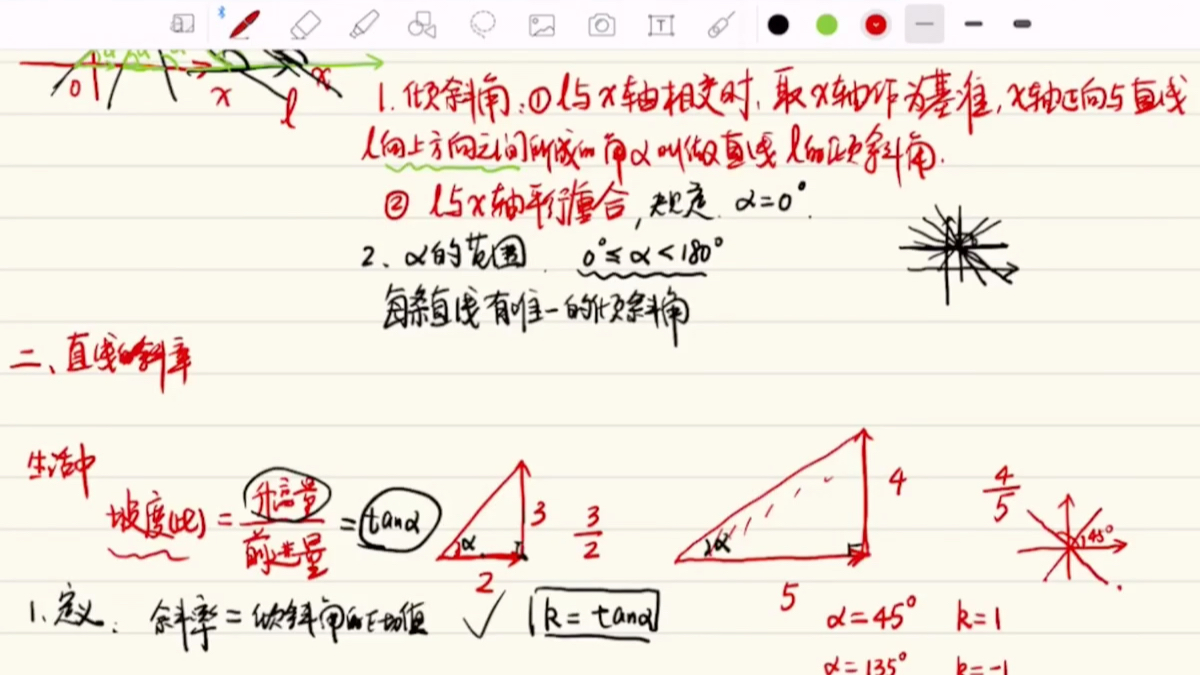 0 x l x
1. 倾斜角：① l与x轴相交时，取x轴作为基准，x轴正向与直线
l向上方向之间所成的角α叫做直线l的倾斜角.
② l与x轴平行重合，规定 α=0°.
2、α的范围. 0°≤α<180°
每条直线有唯一的倾斜角
二、直线的斜率
生活中
坡度(比) = 升高量/前进量 = tanα
α 3 2 3/2
α 4 5 4/5
45°
1、定义：斜率=倾斜角的正切值 ✓ k = tanα
α=45° k=1
α=135° k=-1